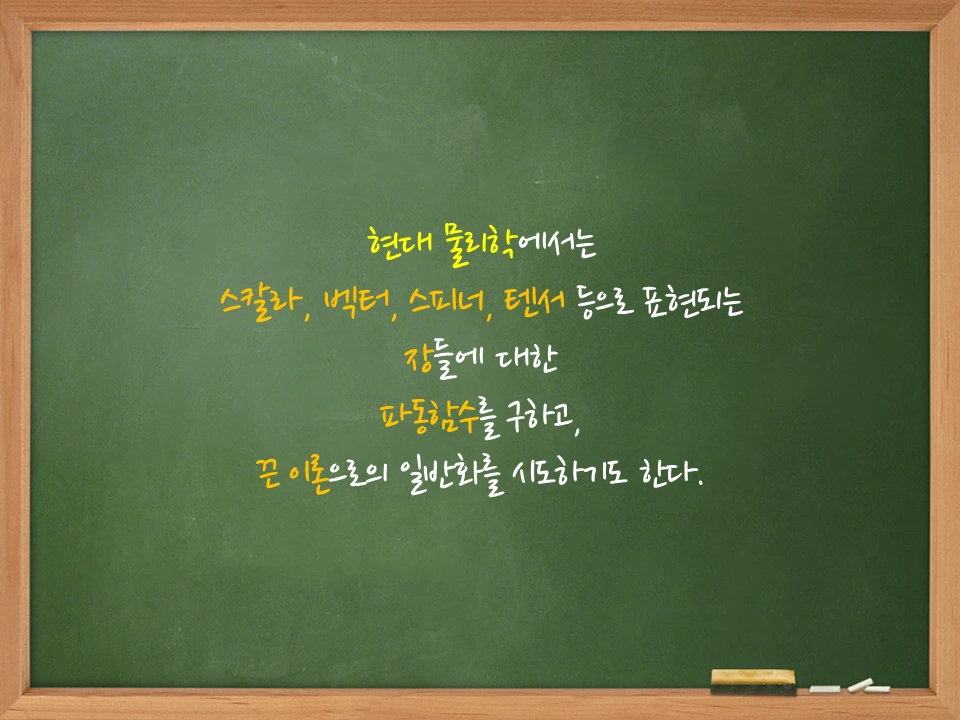 현대 물리학에서는
스칼라, 벡터, 스피너, 텐서 등으로 표현되는
장들에 대한
파동함수를 구하고,
끈 이론으로의 일반화를 시도하기도 한다.